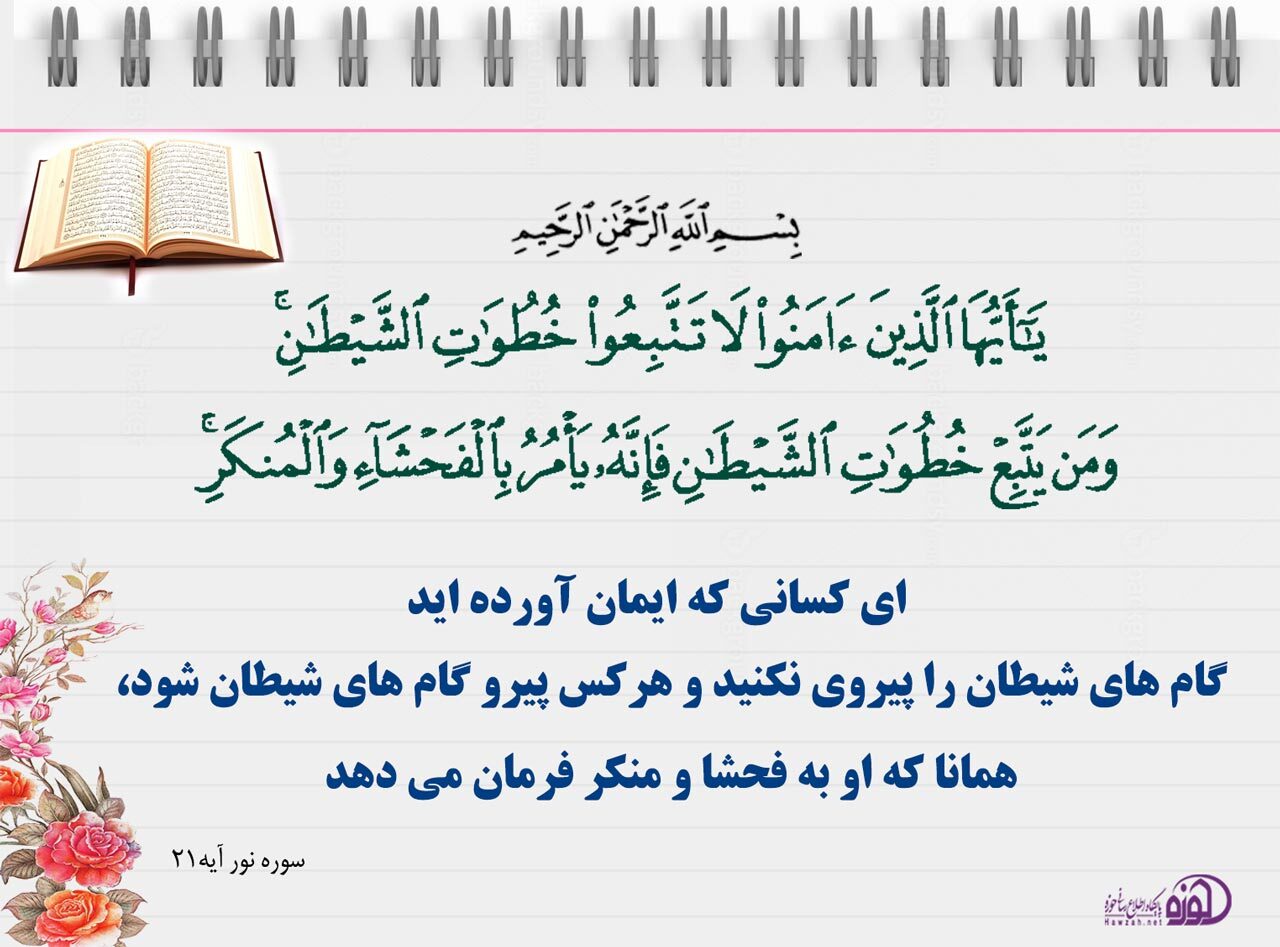 بِسْمِ ٱللَّهِ ٱلرَّحْمَٰنِ ٱلرَّحِيمِ
يَٰٓأَيُّهَا ٱلَّذِينَ ءَامَنُوا۟ لَا تَتَّبِعُوا۟ خُطُوَٰتِ ٱلشَّيْطَٰنِ ۚ
وَمَن يَتَّبِعْ خُطُوَٰتِ ٱلشَّيْطَٰنِ فَإِنَّهُۥ يَأْمُرُ بِٱلْفَحْشَآءِ وَٱلْمُنكَرِ ۚ
ای کسانی که ایمان آورده اید
گام های شیطان را پیروی نکنید و هرکس پیرو گام های شیطان شود،
همانا که او به فحشا و منکر فرمان می دهد
سوره نور آیه۲۱
حوزه پایگاه اطلاع رسانی حوزه
Hawzah.net